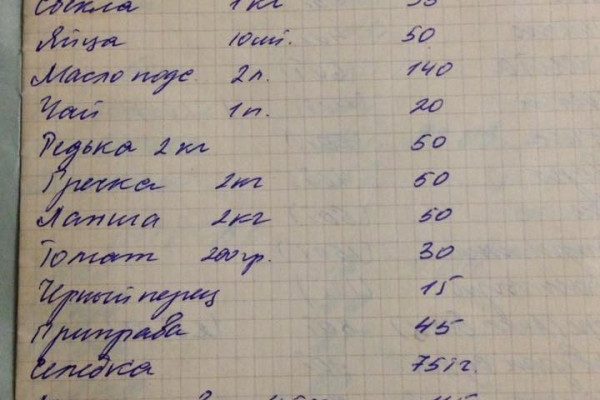 Свекла 1кг 35
Яйца 10шт. 50
Масло подс. 2л. 140
Чай 1п. 20
Редька 2кг 50
Гречка 2кг 50
Лапша 2кг 50
Томат 200гр. 30
Черный перец 15
Приправа 45
Селедка 75 1г.